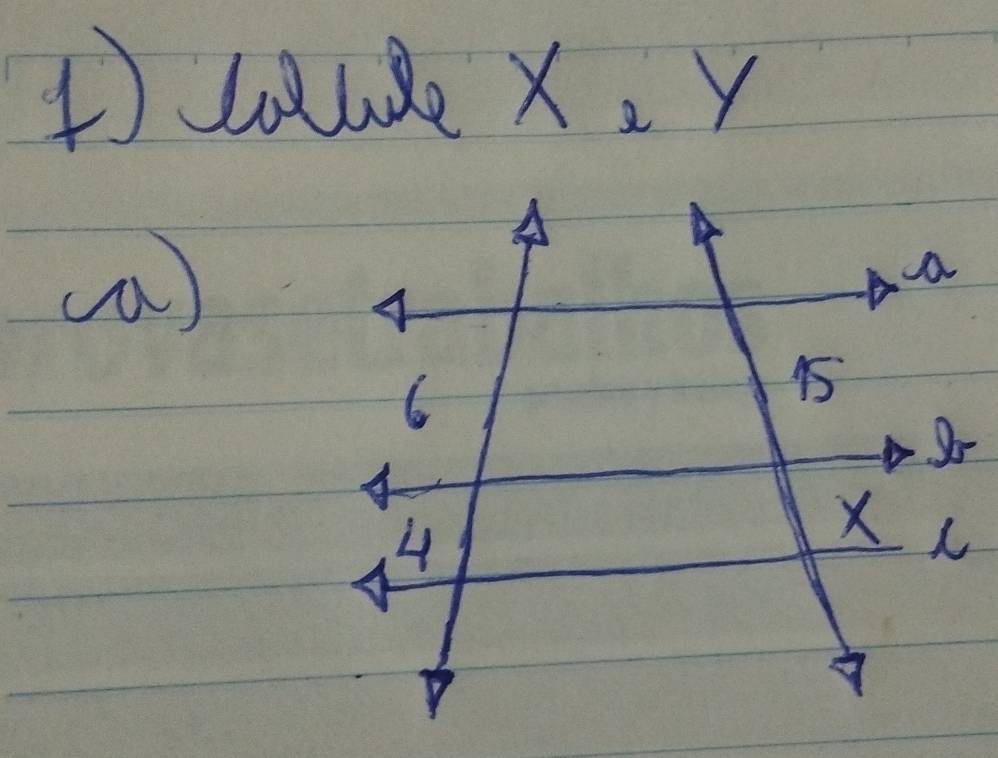 1) Calcule X e Y
a)
a
6
15
b
4
X
c